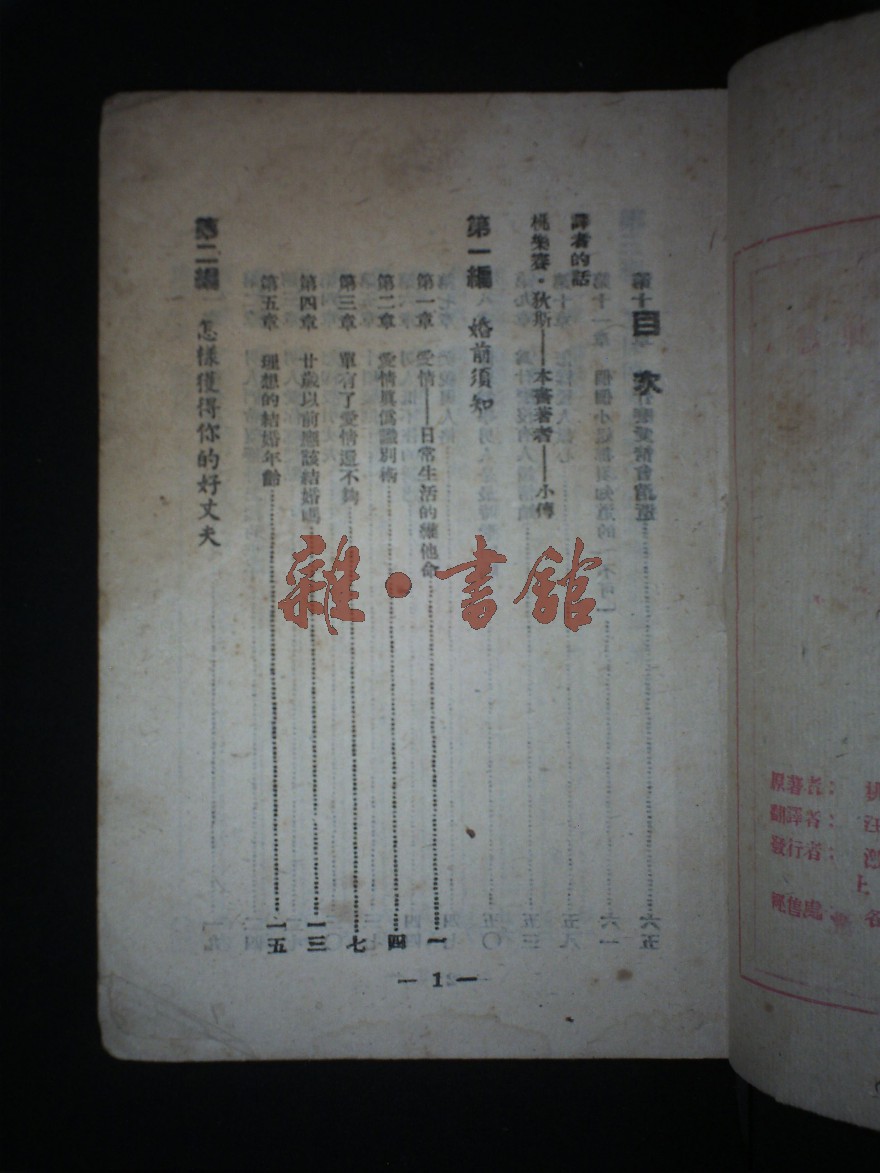 目次
譯者的話
桃樂賽・狄斯——本書著者——小傳
第一編 婚前須知
第一章 愛情——日常生活的維他命 一
第二章 愛情眞僞識別術 四
第三章 單有了愛情還不夠 七
第四章 廿歲以前應該結婚嗎 一三
第五章 理想的結婚年齡 一五
第二編 怎樣獲得你的好丈夫
— 1 —
雜・書館
原著者：
翻譯者：
發行者：
上
經售處：